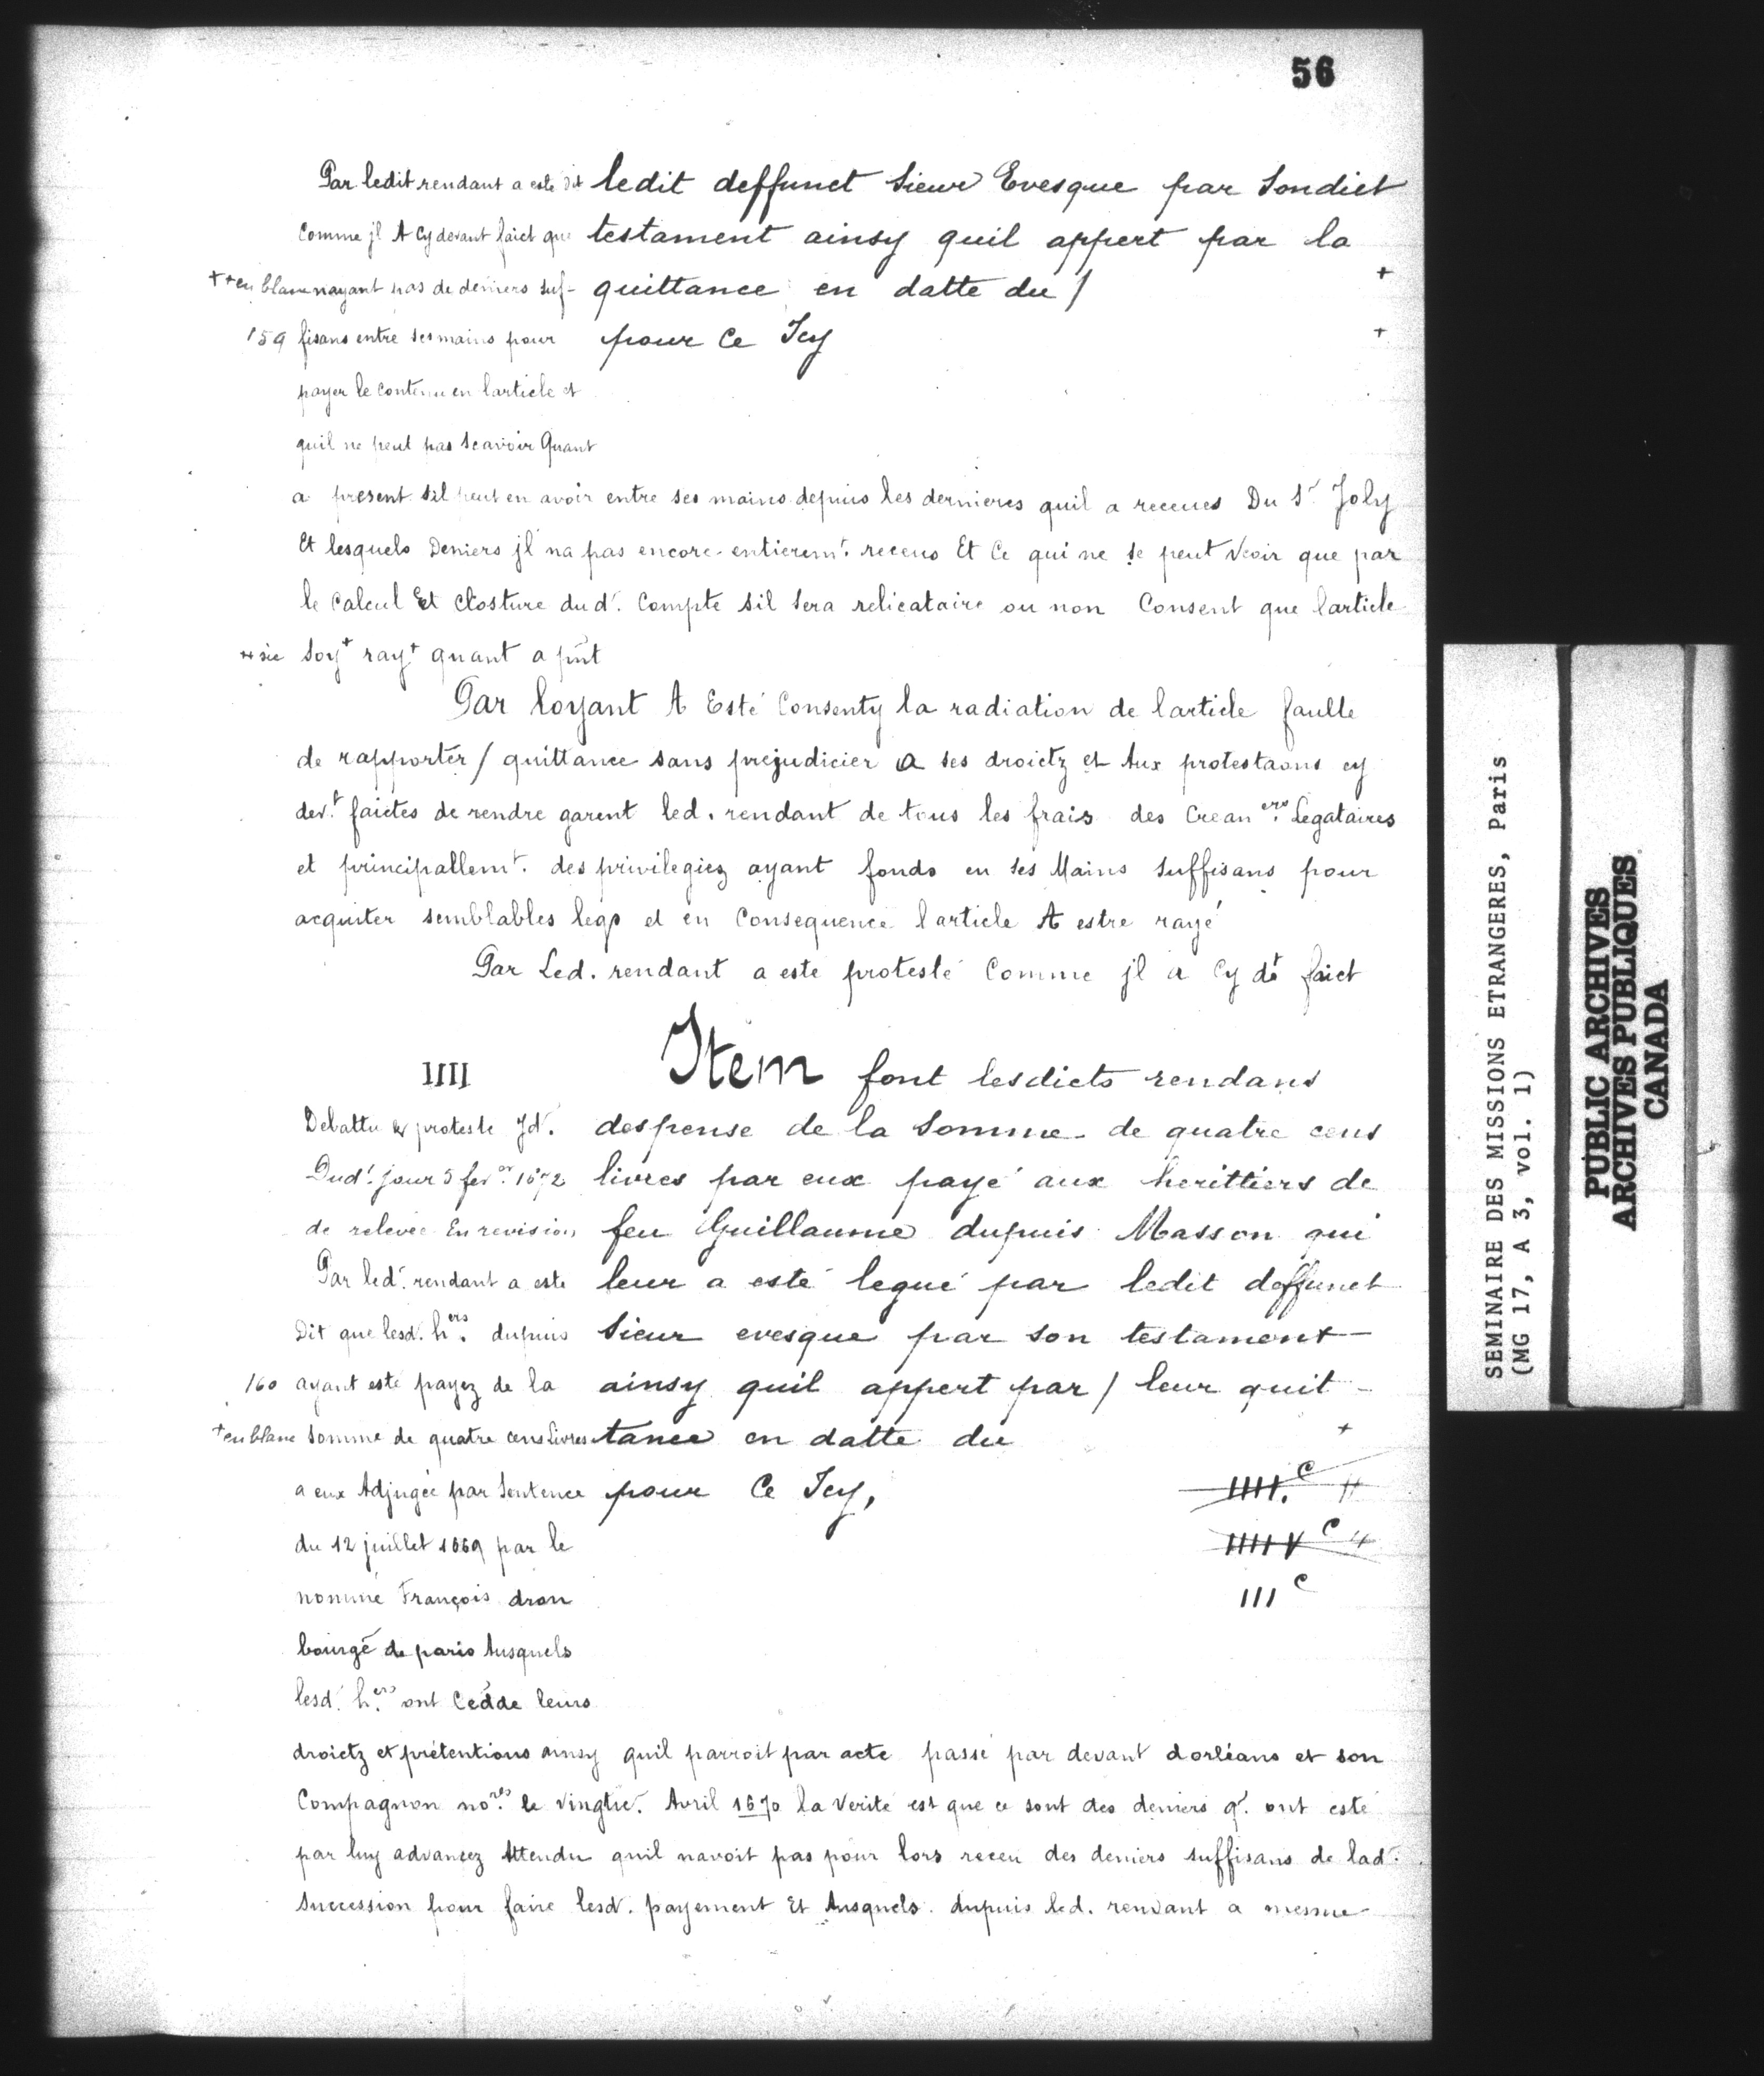 56
Par ledit rendant a esté dit
Comme jl A Cy devant faict que
++ en blanc nayant pas de deniers suf-
159 fisans entre ses mains pour
payer le Contenu en larticle et
quil ne peut pas Scavoir Quant
ledit deffunct Sieur Evesque par Sondict
testament ainsy quil appert par la
quittance en datte du / +
pour Ce Icy +
a present sil peut en avoir entre ses mains depuis les dernieres quil a receues Du Sr Joly
Et lesquels Deniers jl na pas encore entieremt. receus Et Ce qui ne se peut Veoir que par
le Calcul Et Closture dud. Compte sil sera relicataire ou non Consent que larticle
++ sic Soyt rayt quant a pnt
Par loyant A Esté Consenty la radiation de larticle faulte
de rapporter / quittance sans prejudicier a ses droictz et Aux protestaons cy
devt. faictes de rendre garent led. rendant de tous les frais des Creaners. Legataires
et principallemt. des privilegiez ayant fonds en ses Mains suffisans pour
acquiter semblables legs et en Consequence larticle A estre rayé
Par Led. rendant a esté protesté Comme jl a Cy dt faict
IIII
Debattu & protesté Jd.
Dud. jour 5 fever. 1672
de relevée En revision
Par led. rendant a este
Dit que lesd. hers. dupuis
160 ayant esté payez de la
+ en blanc Somme de quatre cens Livres
a eux Adjugée par Sentence
du 12 juillet 1669 par le
nommé François dron
bourgé de paris Ausquels
lesd. hers. ont Cedde leurs
Item font lesdicts rendans
despense de la Somme de quatre cens
livres par eux payé aux herittiers de
feu Guillaume dupuis Masson qui
leur a esté legué par ledit deffunct
Sieur evesque par son testament
ainsy quil appert par / leur quit-
tance en datte du +
pour Ce Icy, IIII. C #
IIIIV C #
III C
droictz et prétentions ainsy quil parroit par acte passé par devant dorléans et son
Compagnon nores. le Vingtie. Avril 1670 la Verité est que ce sont des deniers q. ont esté
par luy advancez Attendu quil navoit pas pour lors receu des deniers suffisans de lad.
Succession pour faire lesd. payement Et Ausquels dupuis led. rendant a mesme
SEMINAIRE DES MISSIONS ETRANGERES, Paris
(MG 17, A 3, vol. 1)
PUBLIC ARCHIVES
ARCHIVES PUBLIQUES
CANADA